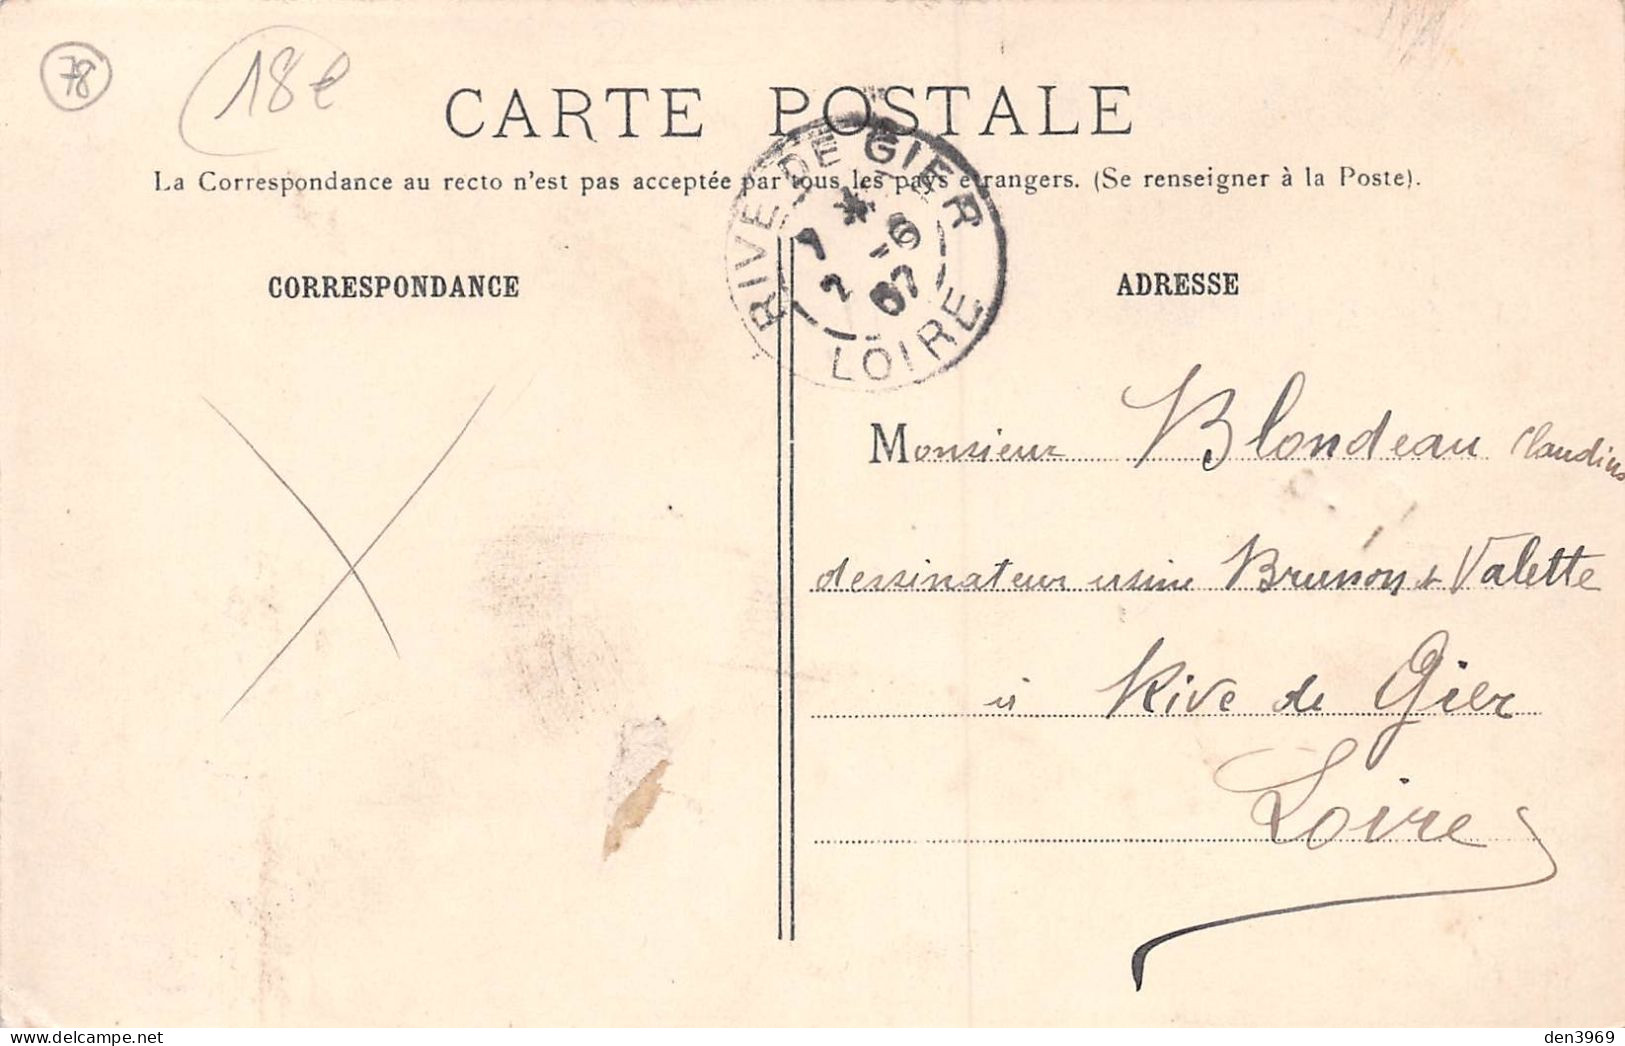 78
18€
CARTE POSTALE
La Correspondance au recto n'est pas acceptée par tous les pays etrangers. (Se renseigner à la Poste).
RIVE DE GIER
7 *
2 -6
07
LOIRE
CORRESPONDANCE
ADRESSE
Monsieur Blondeau Claudius
dessinateur usine Brunon & Valette
à Rive de Gier
Loire
delcampe.net
den3969